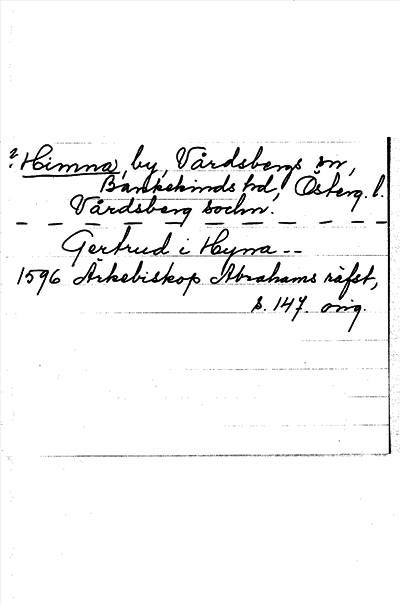 ? Himna, by, Vårdsbergs sn,
Bankekinds hd, Österg. l.
Vårdsberg sochn.
Gertrud i Hyma --
1596 Ärkebiskop Abrahams räfst,
s. 147. orig.